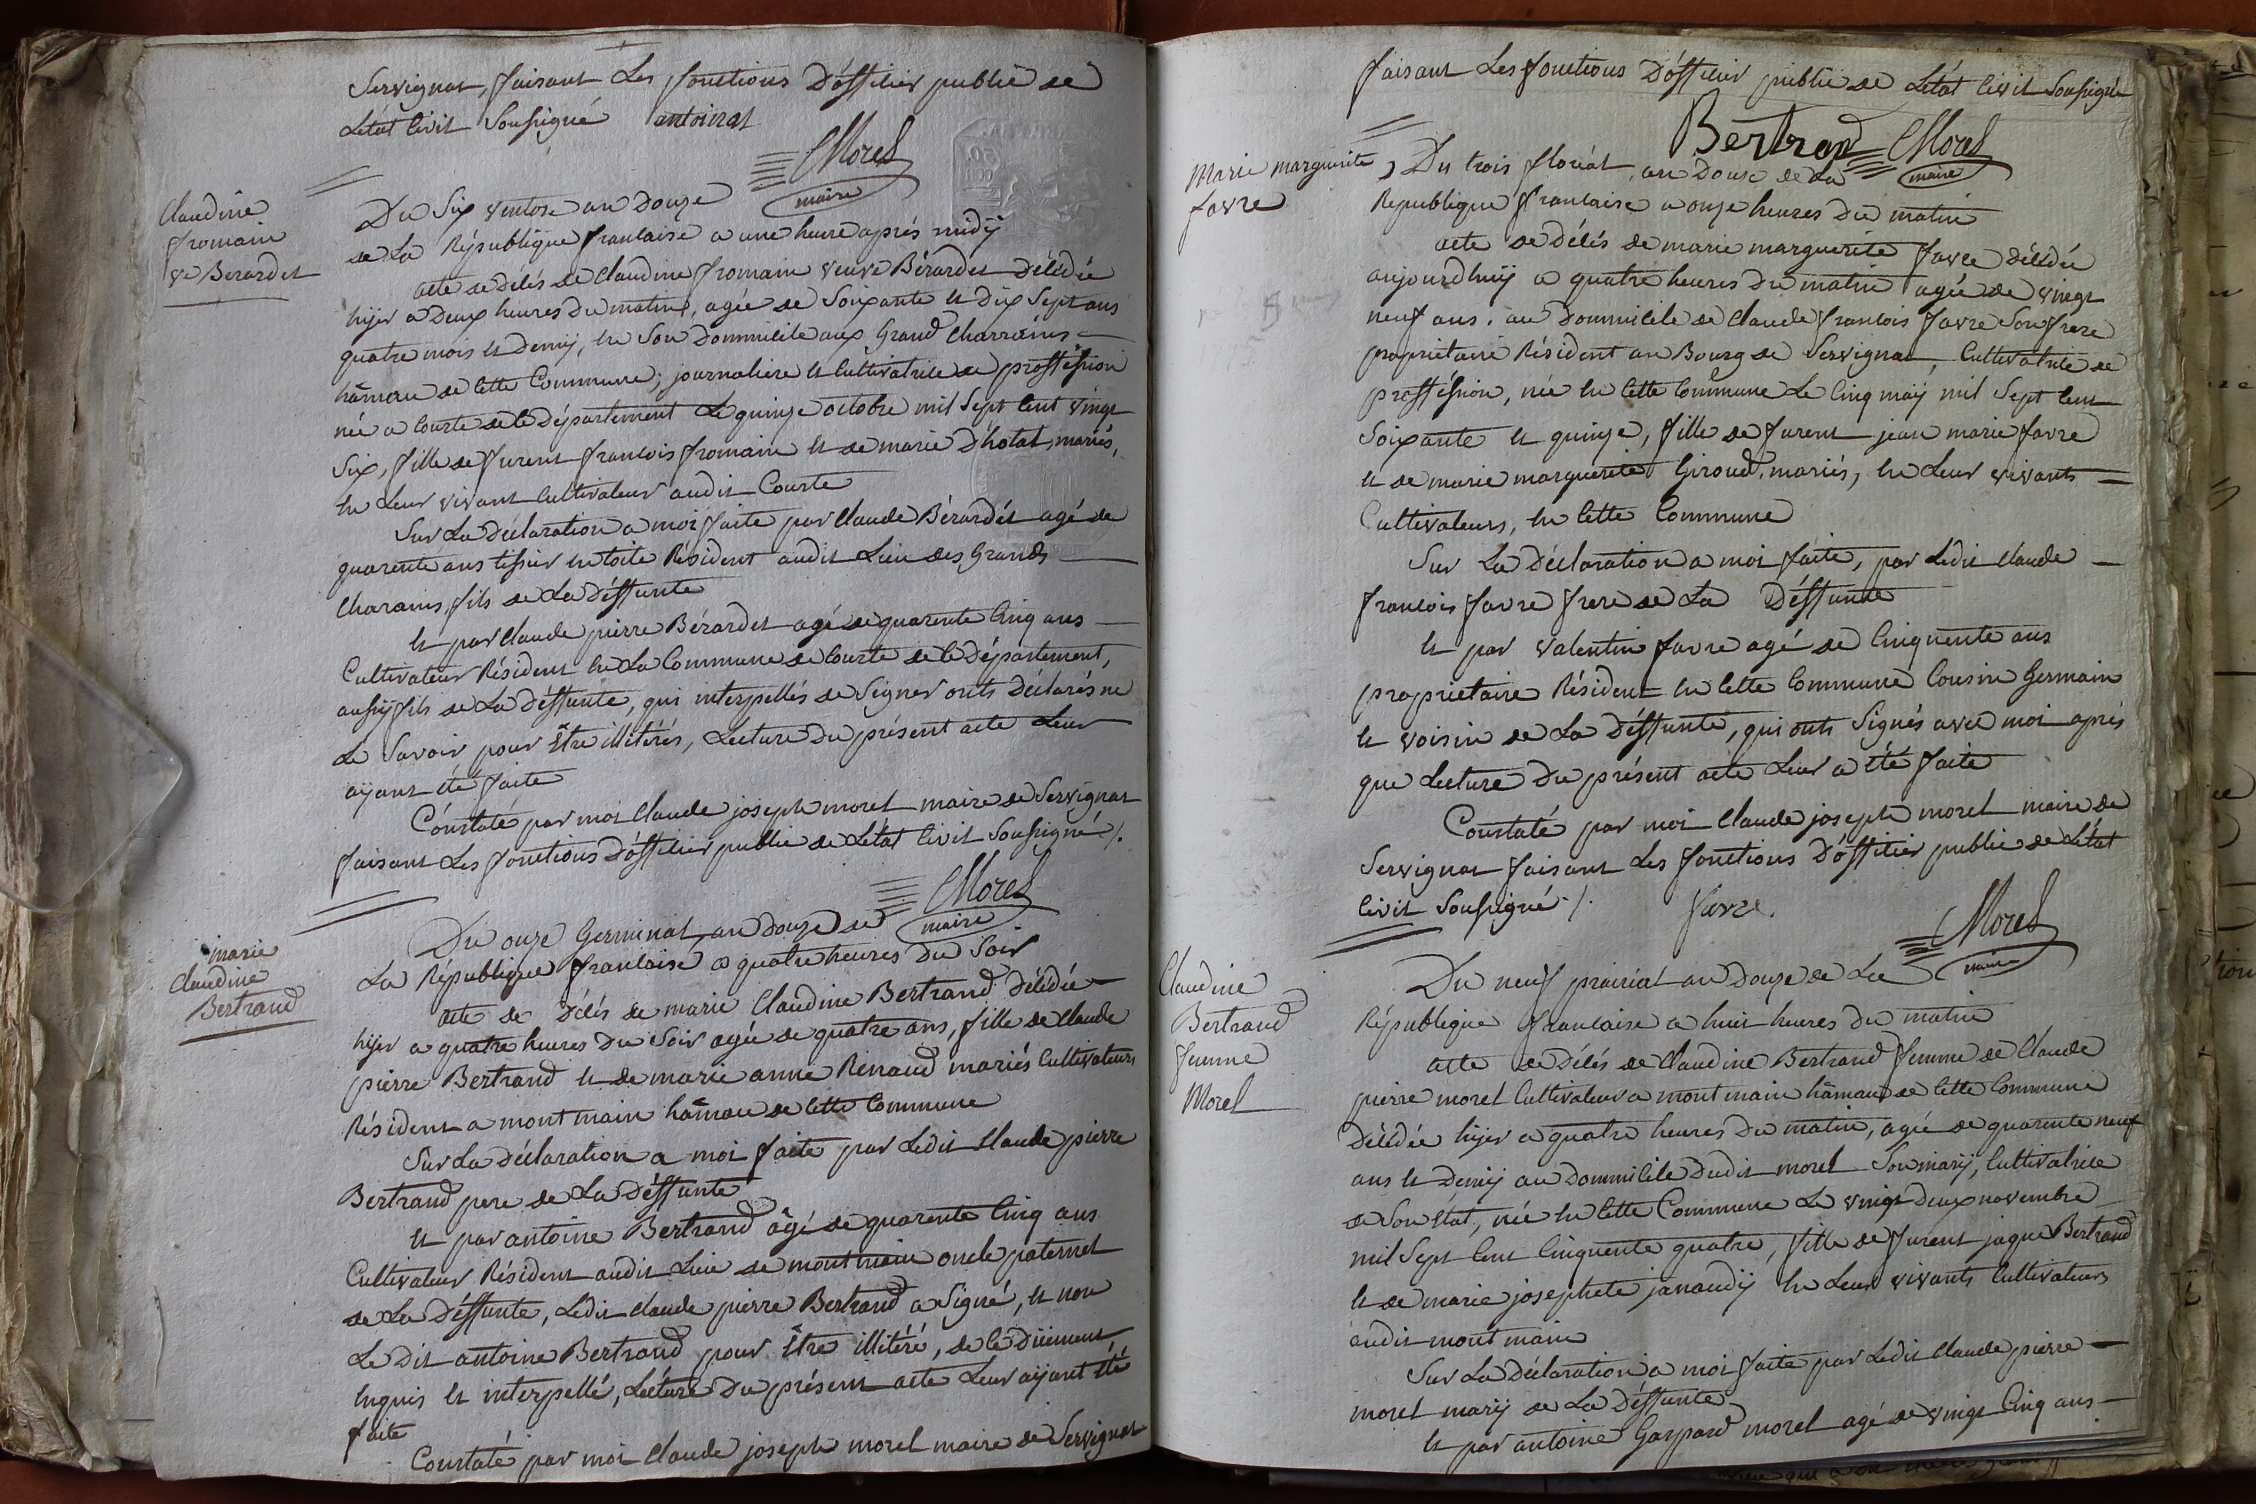 Servignat, faisant Les fonctions D'officier public de
L'état Civil Soussigné antoinat
Morel
maire
Claudine
fromain
ve Berardet
Du Six ventose an Douze
de La République francaise a une heure aprés midÿ
acte de décés de Claudine fromain veuve Bérardet Décédée
hÿer a Deux heures Du matin, agée de Soixante et Dix Sept ans
quatre mois et Demÿ, en Son Dommicile aux Grand Charrains
hâmeau de Cette Commune, journaliere et Cultivatrice de proffession
née a Courte de Ce Département Le quinze octobre mil Sept Cent vingt
Six, fille de furent francois fromain et de marie D'hotat, mariés,
en Leur vivant Cultivateur audit Courte
Sur La Déclaration a moi faite par Claude Bérardet agé de
quarente ans tissier en toile Résident audit Lieu des Grands
Charains, fils de La Déffunte
et par Claude pierre Bérardet agé de quarente Cinq ans
Cultivateur Résident en La Commune de Courte de Ce Département,
aussÿ fils de La Déffunte, qui interpellés de Signer onts Déclarés ne
Le Savoir pour Être illitérés, Lecture Du présent acte Leur
aÿant été faite
Constaté par moi Claude joseph morel maire de Servignat
faisant Les fonctions D'officier public de L'état Civil Soussigné ./.
Morel
maire
marie
Claudine
Bertrand
Du onze Germinal an Douze de
La République francaise a quatre heures Du Soir
acte de Décés de marie Claudine Bertrand Décédée
hÿer a quatre heures Du Soir agée de quatre ans, fille de Claude
pierre Bertrand et de marie anne Renaud mariés Cultivateurs
Résident a montmain hâmeau de Cette Commune
Sur La déclaration a moi faite par Ledit Claude pierre
Bertrand pere de La Déffunte
et par antoine Bertrand âgé de quarente Cinq ans
Cultivateur Résident audit Lieu de montmain oncle paternel
de La Déffunte, Ledit Claude pierre Bertrand a Signé, et non
Le Dit antoine Bertrand pour Être illitéré, de Ce Düement
enquis et interpellé, Lecture Du présent acte Leur aÿant été
faite
Constaté par moi Claude joseph morel maire de Servignat
faisant Les fonctions D'officier public de L'état Civil Soussigné
Bertrand Morel
maire
Marie Marguerite
favre
Du trois floréal, an Douze de La
Republique francaise a onze heures Du matin
acte de Décés de marie marguerite favre Décédée
aujourdhuÿ a quatre heures Du matin agée de vingt
neuf ans, au Dommicile de Claude francois favre Son frere
proprietaire Résident au Bourg de Servignat, Cultivatrice de
proffession, née en Cette Commune Le Cinq maÿ mil Sept Cent
Soixante et quinze, fille de furent jean marie favre
et de marie marguerite Giroud, mariés, en Leur vivants
Cultivateurs, en Cette Commune
Sur La Déclaration a moi faite, par Ledit Claude
francois favre frere de La Déffunte
et par valentin favre agé de Cinquente ans
proprietaire Résident en Cette Commune Cousin Germain
et voisin de La Déffunte, qui onts Signés avec moi aprés
que Lecture Du présent acte Leur a été faite
Constaté par moi Claude joseph morel maire de
Servignat faisant Les fonctions D'officier public de L'état
Civil Soussigné ./. favre.
Morel
maire
Claudine
Bertrand
femme
Morel
Du neuf prairial an Douze de La
République francaise a huit heures Du matin
acte de Décés de Claudine Bertrand femme de Claude
pierre morel Cultivateur a montmain hâmau de Cette Commune
Décédée hÿer a quatre heures Du matin, agée de quarente neuf
ans et Demÿ au Dommicile Dudit morel Son marÿ, Cultivatrice
de Son état, née en Cette Commune Le vingt Deux novembre
mil Sept Cent Cinquente quatre, fille de furent jaque Bertrand
et de marie josephete janaudÿ en Leur vivants Cultivateurs
audit montmain
Sur La Déclaration a moi faite par Ledit Claude pierre
morel marÿ de La Déffunte
et par antoine Gaspard morel agé de vingt Cinq ans